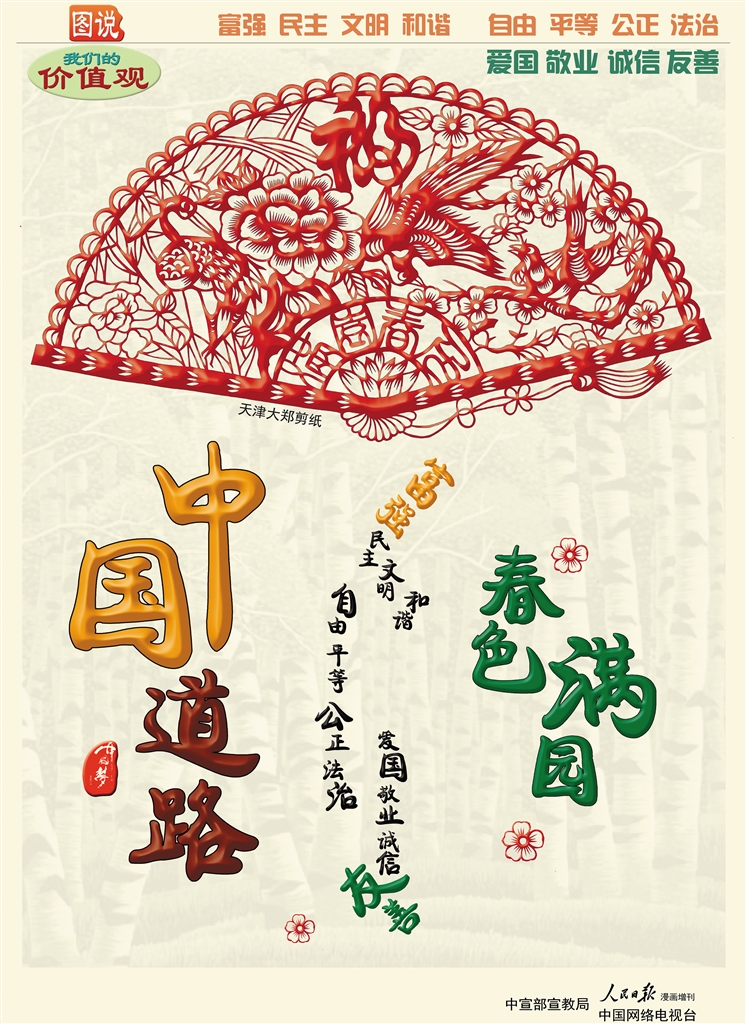 图说
富强 民主 文明 和谐 自由 平等 公正 法治
我们的
价值观
爱国 敬业 诚信 友善
福
满园春色
天津大郑剪纸
中国
道路
富强
民主
文明
和谐
自由
平等
公正
法治
爱国
敬业
诚信
友善
春色
满园
中国梦
中宣部宣教局
人民日报 漫画增刊
中国网络电视台